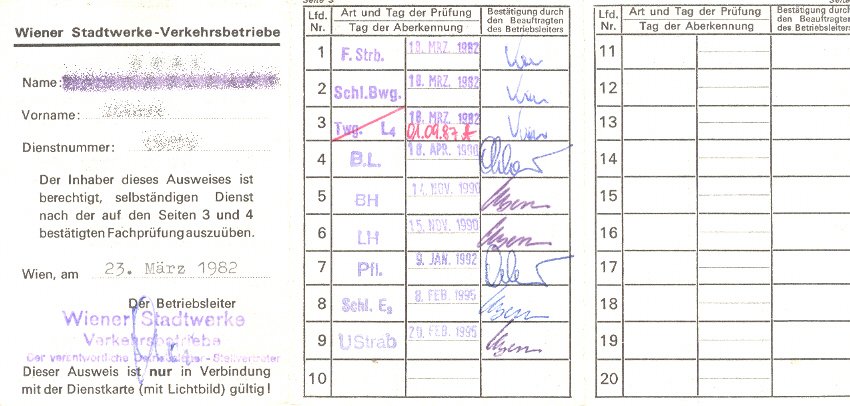 Wiener Stadtwerke-Verkehrsbetriebe
Name:
Vorname:
Dienstnummer:
Der Inhaber dieses Ausweises ist
berechtigt, selbständigen Dienst
nach der auf den Seiten 3 und 4
bestätigten Fachprüfung auszuüben.
Wien, am 23. März 1982
Der Betriebsleiter
Wiener Stadtwerke
Verkehrsbetriebe
Der verantwortliche Betriebsleiter-Stellvertreter
Dieser Ausweis ist nur in Verbindung
mit der Dienstkarte (mit Lichtbild) gültig!
Seite 3
Lfd. Nr. Art und Tag der Prüfung Bestätigung durch den Beauftragten des Betriebsleiters
Tag der Aberkennung
1 F. Strb. 18. MRZ. 1982
2 Schl.Bwg. 18. MRZ. 1982
3 Twg. L4 18. MRZ. 1982
01.09.87
4 B.L. 18. APR. 1990
5 BH 14. NOV. 1990
6 LH 15. NOV. 1990
7 Pfl. 9. JAN. 1992
8 Schl. E8 8. FEB. 1995
9 UStrab 20. FEB. 1995
10
Seite
Lfd. Nr. Art und Tag der Prüfung Bestätigung durch den Beauftragten des Betriebsleiters
Tag der Aberkennung
11
12
13
14
15
16
17
18
19
20